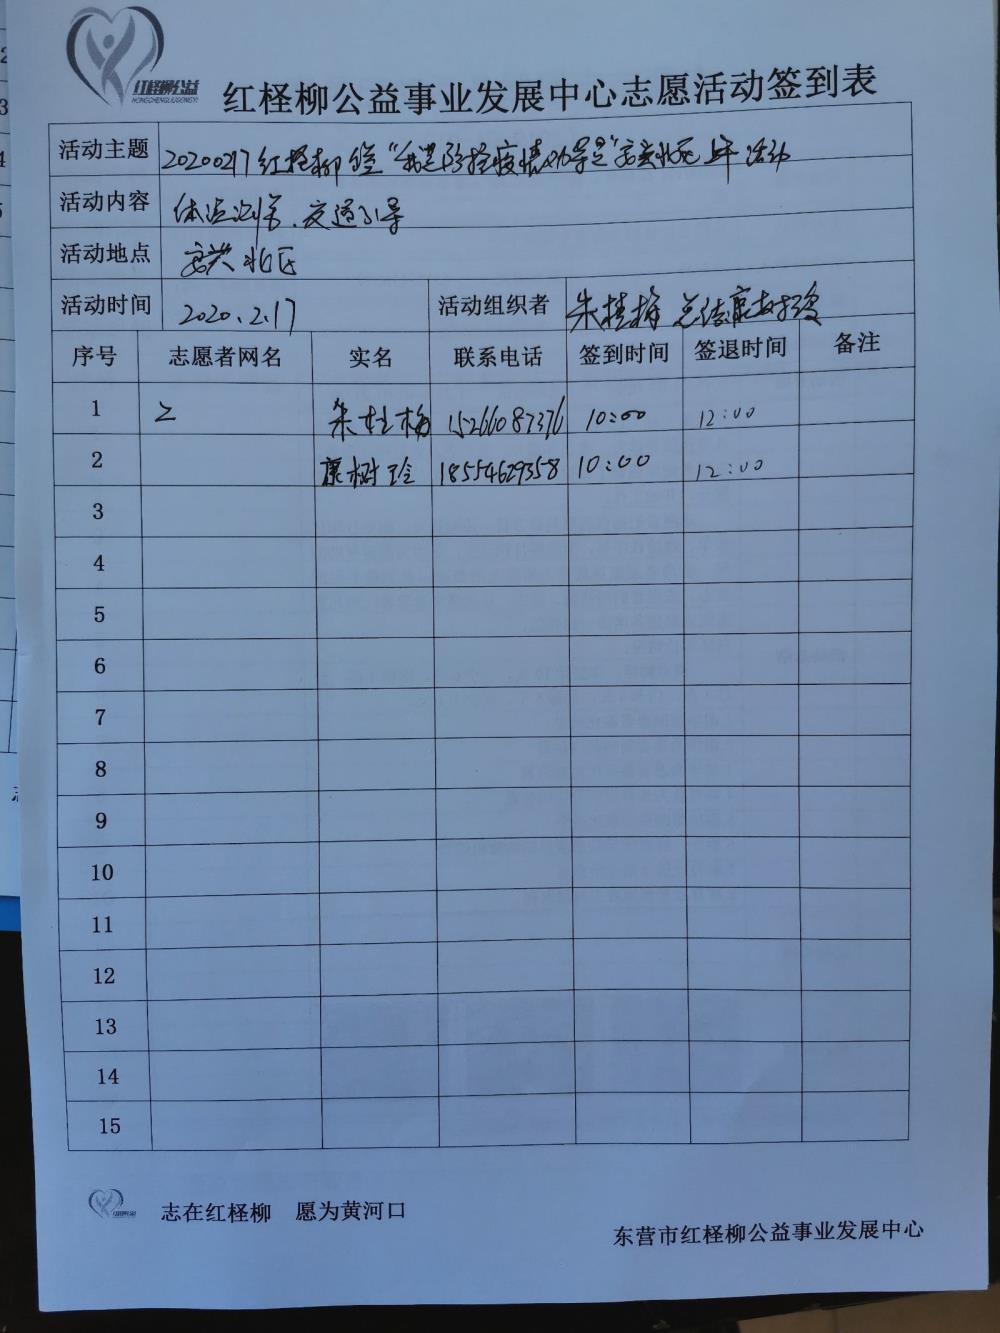 红柽柳公益
HONGCHENGLIUGONGYI
红柽柳公益事业发展中心志愿活动签到表
活动主题 20200217红柽柳 防控疫情 活动
活动内容 体温测量、交通引导
活动地点 北区
活动时间 2020.2.17 活动组织者 朱桂梅 总结
序号 志愿者网名 实名 联系电话 签到时间 签退时间 备注
1 朱桂梅 15266087376 10:00 12:00
2 康树玲 18554629358 10:00 12:00
3
4
5
6
7
8
9
10
11
12
13
14
15
志在红柽柳 愿为黄河口
东营市红柽柳公益事业发展中心